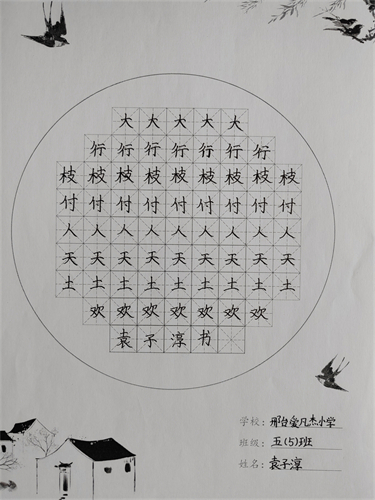 大大大大大
行行行行行行行
枝枝枝枝枝枝枝枝枝
付付付付付付付付付
人人人人人人人人人
天天天天天天天天天
土土土土土土土土土
欢欢欢欢欢欢欢
袁子淳书
学校:邢台爱凡杰小学
班级:五(5)班
姓名:袁子淳